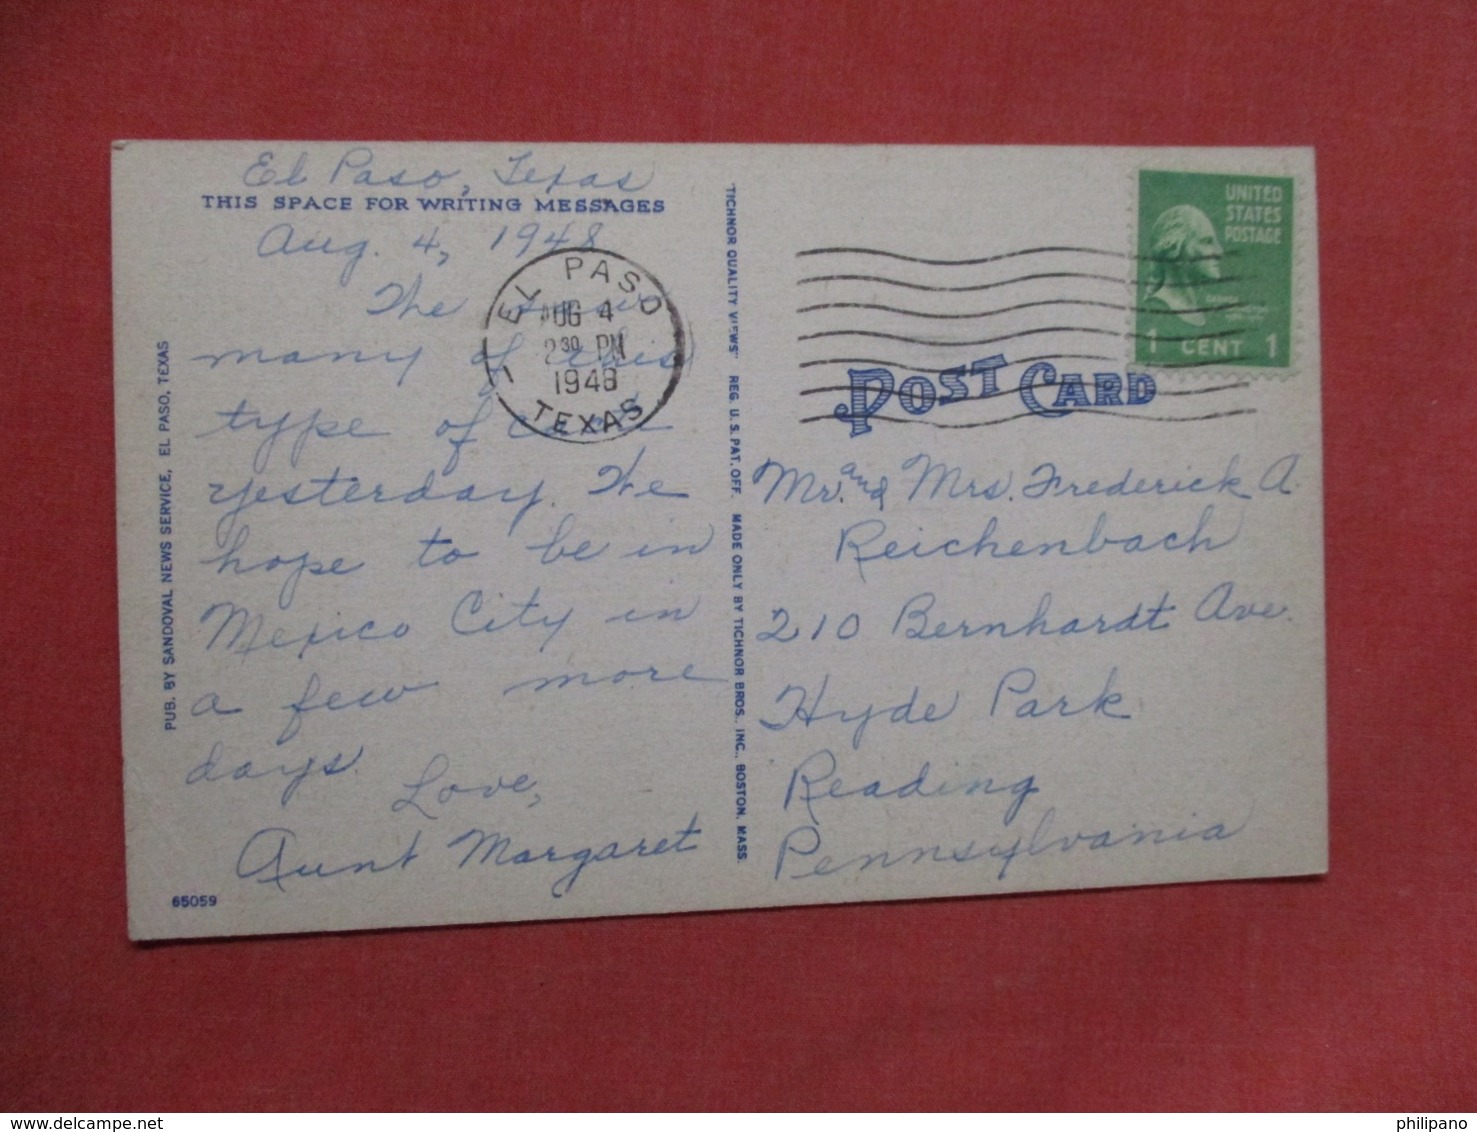 El Paso, Texas
THIS SPACE FOR WRITING MESSAGES
Aug. 4, 1948
The
many of this
type of
yesterday. We
hope to be in
Mexico City in
a few more
days.
Love,
Aunt Margaret
65059
PUB. BY SANDOVAL NEWS SERVICE, EL PASO, TEXAS
EL PASO
AUG 4
2 30 PM
1948
TEXAS
1
"TICHNOR QUALITY VIEWS" REG. U. S. PAT. OFF. MADE ONLY BY TICHNOR BROS., INC., BOSTON, MASS.
UNITED
STATES
POSTAGE
1 CENT 1
POST CARD
Mr. and Mrs. Frederick A.
Reichenbach
210 Bernhardt Ave.
Hyde Park
Reading
Pennsylvania
philipano